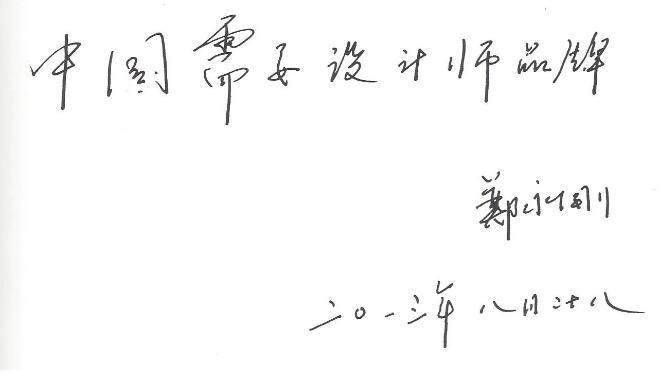 中国需要设计师品牌
鄭永刚
二〇一三年八月二十八